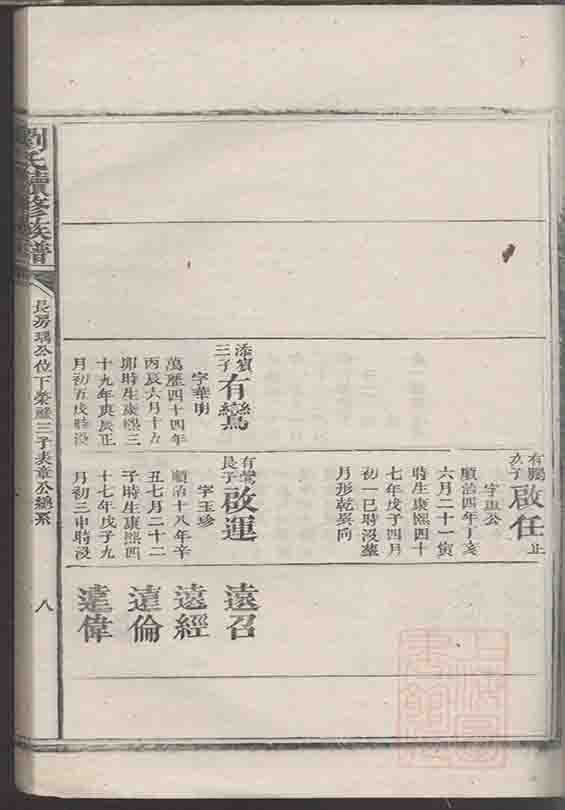 劉氏續修族譜
長房瑀公位下榮歷三子表章公總系
八
有鵬
次子
啟任
止
字重公
順治四年丁亥
六月二十一寅
時生康熙四十
七年戊子四月
初一巳時沒葬
月形乾巽向
添寘
三子
有鸞
字華明
萬歷四十四年
丙辰六月十九
卯時生康熙三
十九年庚辰正
月初五戌時沒
有鸞
長子
啟運
字玉珍
順治十八年辛
丑七月二十二
子時生康熙四
十七年戊子九
月初三申時沒
遠召
遠經
遠倫
遠偉